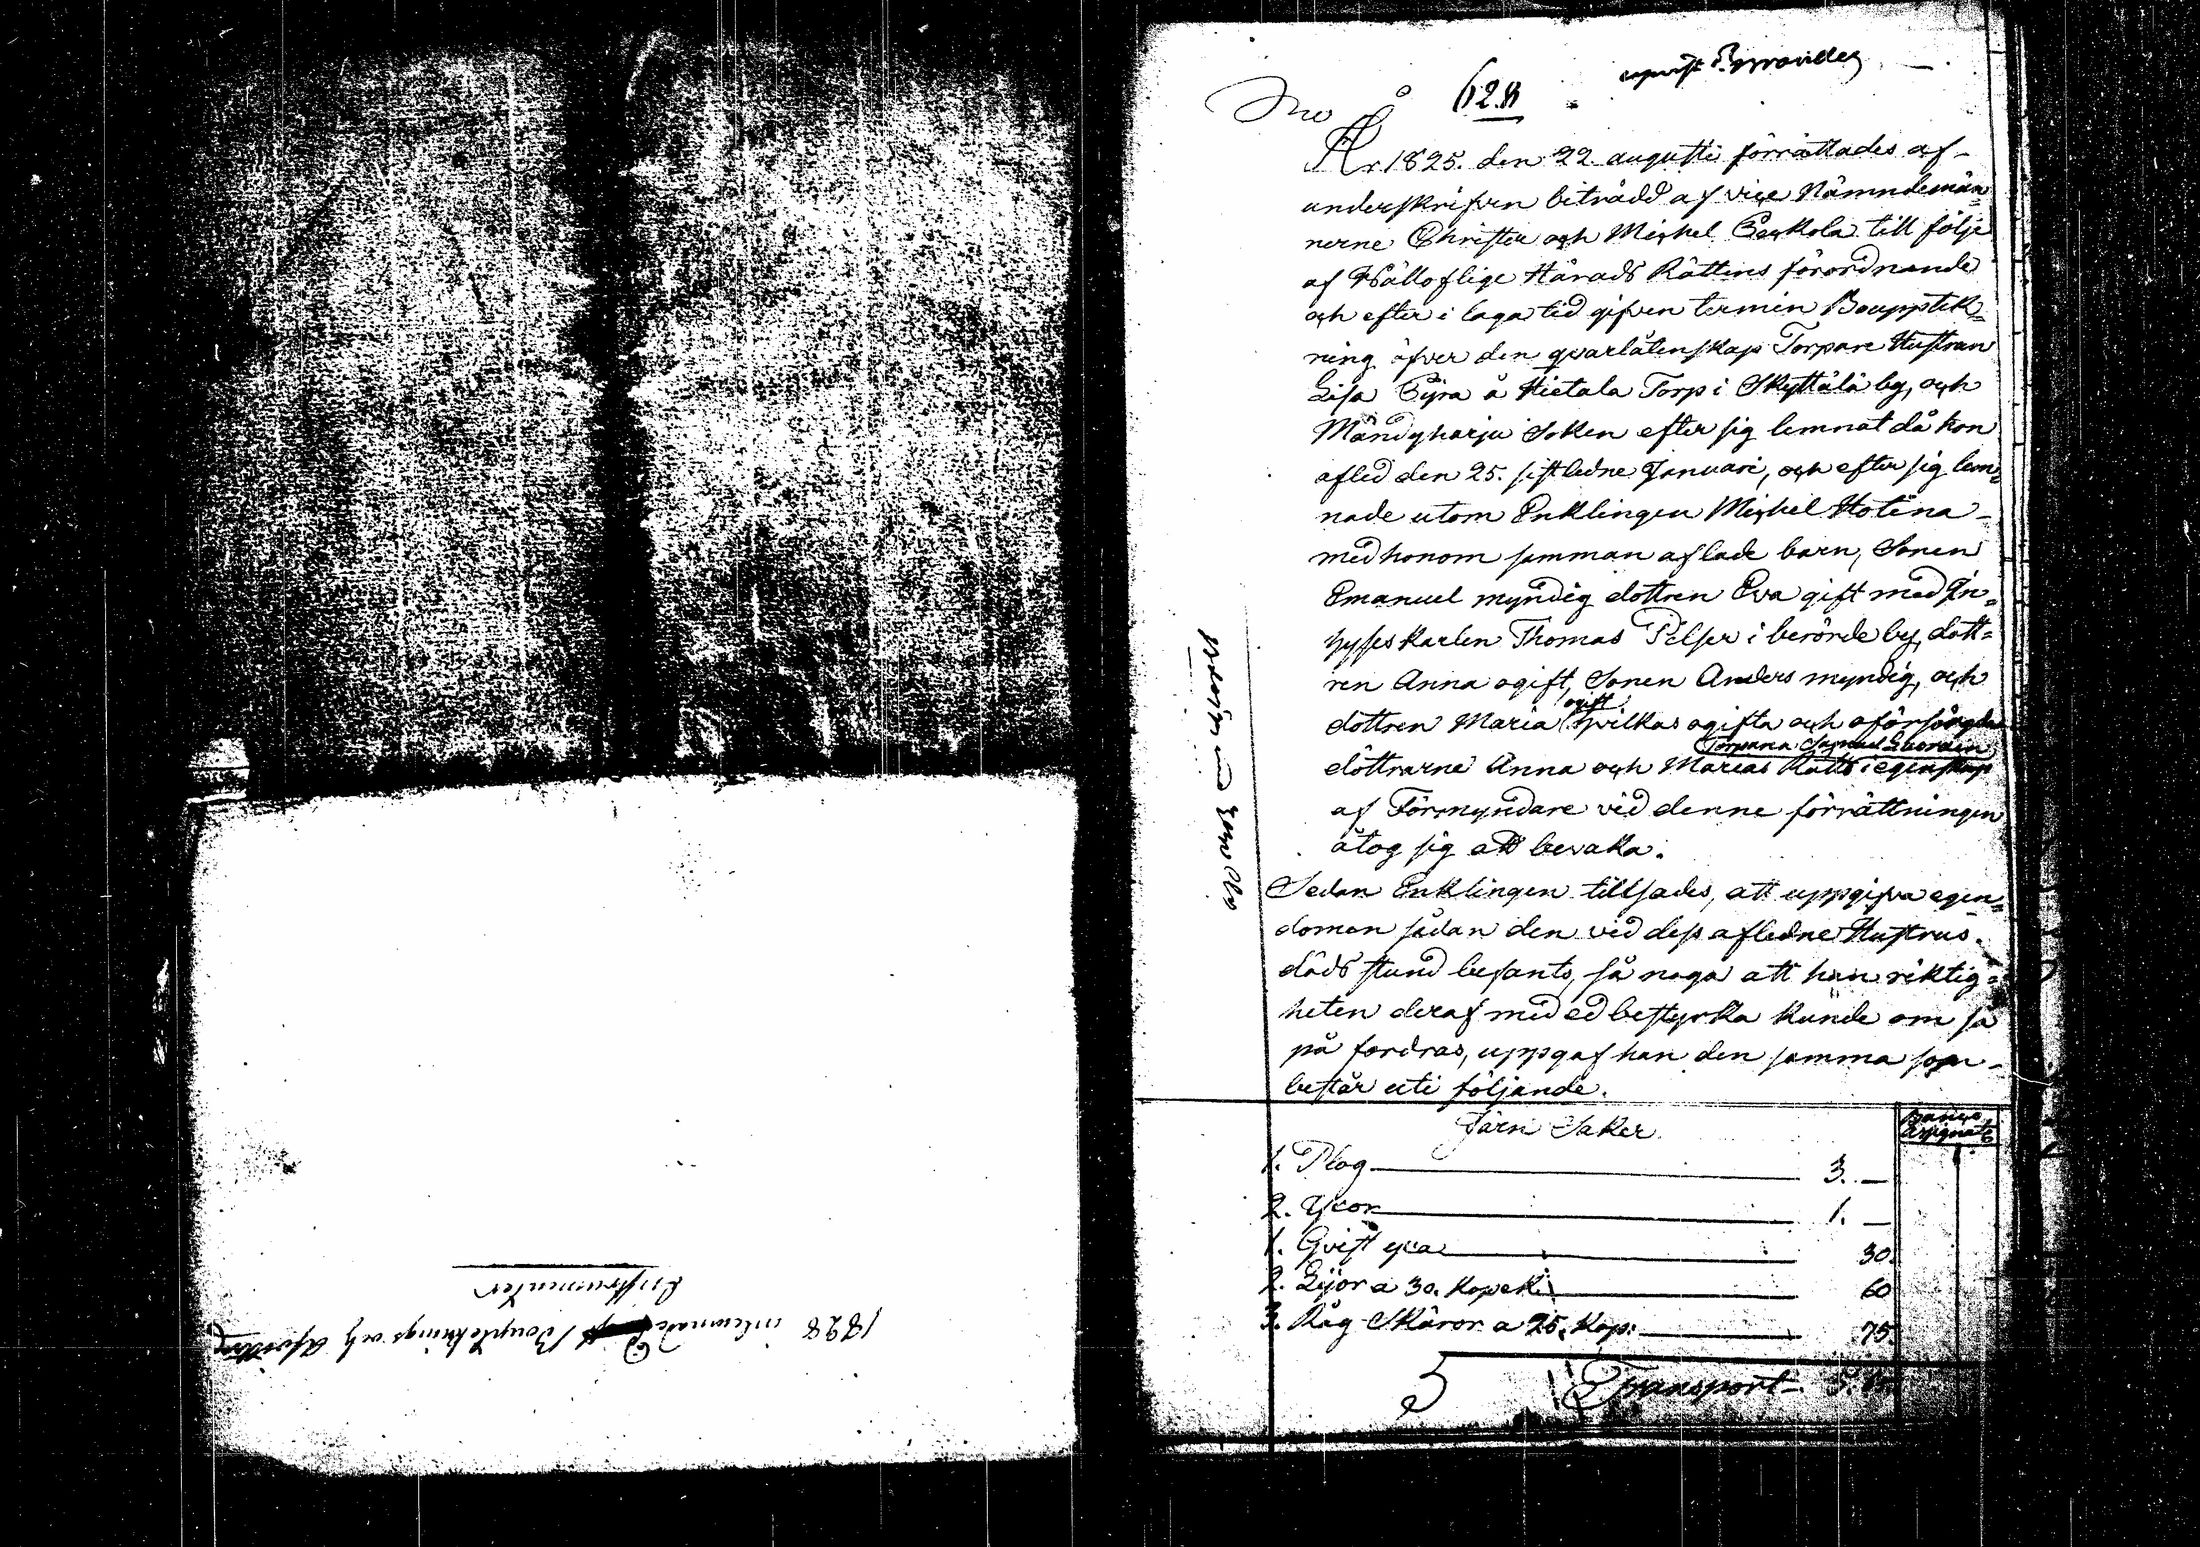 1828 inlemnade Boupteknings och Afvittring
Instrumenter
No 62.
År 1825. den 22 augusti förrättades af
underskrifven biträdd af vice Nämndemän=
nerne Christer och Michel Päckola till följe
af Wälloflige Härads Rättens förordnande
och efter i laga tid gifven termin Bouptek=
ning öfver den qvarlåtenskap Torpare Hustrun
Lisa Pijra å Hietala Torp i Skyttälä by, och
Mändyharju Soken efter sig lemnat då hon
afled den 25. sistledne Januari, och efter sig lem=
nade utom Enklingen Michel Hotina
med honom samman aflade barn, Sonen
Emanuel myndig dottren Eva gift med In=
hyseskarlen Thomas Pelser i berörde by, dott=
ren Anna ogift, Sonen Anders myndig, och
dottren Maria ogift, hvilkas ogifta och oförsörgda
Torparen Samuel
döttrarne Anna och Marias Rätt i egenskap
af Förmyndare vid denne förrättningen
åtog sig att bevaka.
Sedan Enklingen tillsades, att uppgifva egen=
domen sådan den vid dess afledne Hustrus
döds stund befants, så noga att han riktig=
heten deraf med ed bestyrka kunde om så
på fordras, uppgaf han den samma som
består uti följande.
Banco
Assignats
Järn Saker
1. Plog 3. —
2. Yxor 1. —
1. Qvist yxa 30.
2. Lijor a 30. Kopek 60
3. Råg Skäror a 25. Kop: 75.
Transport 5.